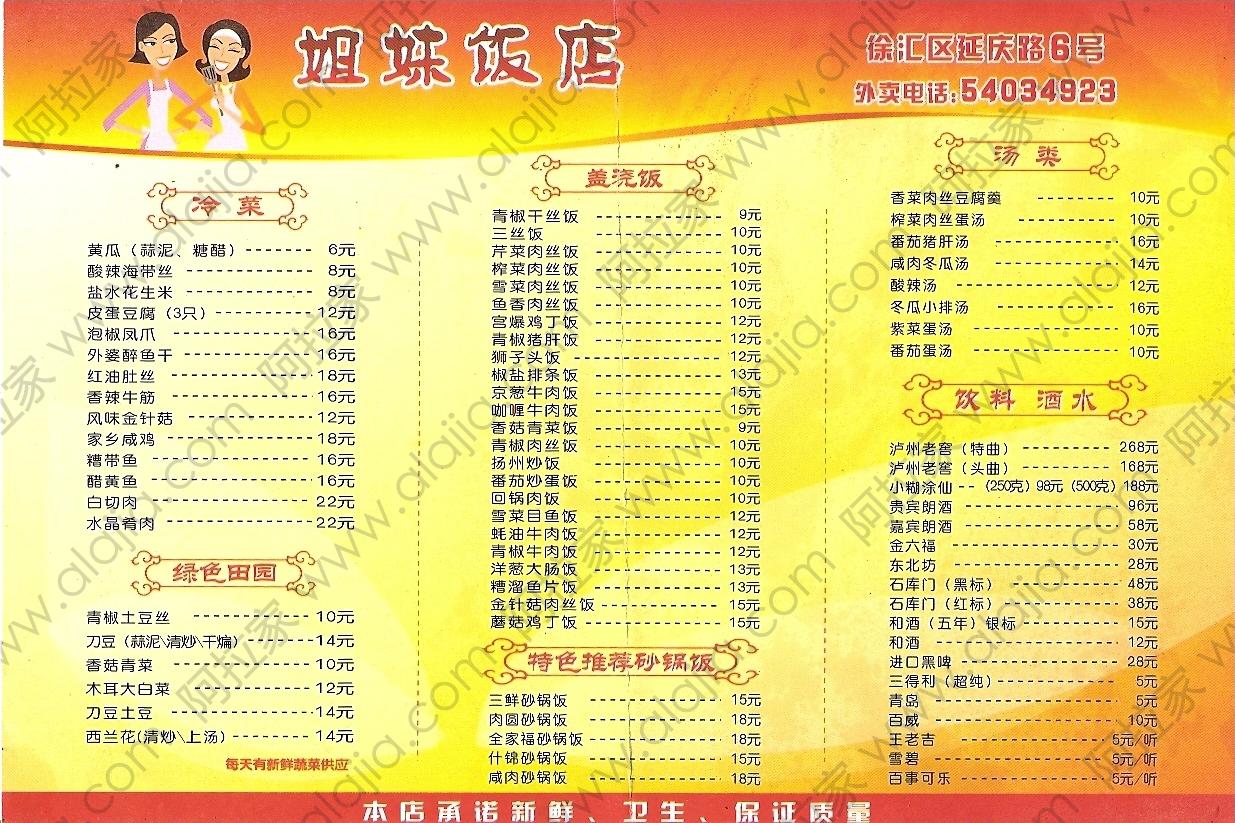 姐妹饭店
徐汇区延庆路6号
外卖电话:54034923
冷菜
黄瓜（蒜泥、糖醋） 6元
酸辣海带丝 8元
盐水花生米 8元
皮蛋豆腐（3只） 12元
泡椒凤爪 16元
外婆醉鱼干 16元
红油肚丝 18元
香辣牛筋 16元
风味金针菇 12元
家乡咸鸡 18元
糟带鱼 16元
醋黄鱼 16元
白切肉 22元
水晶肴肉 22元
绿色田园
青椒土豆丝 10元
刀豆（蒜泥\清炒\干煸） 14元
香菇青菜 10元
木耳大白菜 12元
刀豆土豆 14元
西兰花(清炒\上汤) 14元
每天有新鲜蔬菜供应
盖浇饭
青椒干丝饭 9元
三丝饭 10元
芹菜肉丝饭 10元
榨菜肉丝饭 10元
雪菜肉丝饭 10元
鱼香肉丝饭 10元
宫爆鸡丁饭 12元
青椒猪肝饭 12元
狮子头饭 12元
椒盐排条饭 13元
京葱牛肉饭 15元
咖喱牛肉饭 15元
香菇青菜饭 9元
青椒肉丝饭 10元
扬州炒饭 10元
番茄炒蛋饭 10元
回锅肉饭 10元
雪菜目鱼饭 12元
蚝油牛肉饭 12元
青椒牛肉饭 12元
洋葱大肠饭 13元
糟溜鱼片饭 13元
金针菇肉丝饭 15元
蘑菇鸡丁饭 15元
特色推荐砂锅饭
三鲜砂锅饭 15元
肉圆砂锅饭 18元
全家福砂锅饭 18元
什锦砂锅饭 15元
咸肉砂锅饭 18元
汤类
香菜肉丝豆腐羹 10元
榨菜肉丝蛋汤 10元
番茄猪肝汤 16元
咸肉冬瓜汤 14元
酸辣汤 12元
冬瓜小排汤 16元
紫菜蛋汤 10元
番茄蛋汤 10元
饮料 酒水
泸州老窖（特曲） 268元
泸州老窖（头曲） 168元
小糊涂仙--（250克）98元（500克）188元
贵宾郎酒 96元
嘉宾郎酒 58元
金六福 30元
东北坊 28元
石库门（黑标） 48元
石库门（红标） 38元
和酒（五年）银标 15元
和酒 12元
进口黑啤 28元
三得利（超纯） 5元
青岛 5元
百威 10元
王老吉 5元/听
雪碧 5元/听
百事可乐 5元/听
本店承诺新鲜、卫生、保证质量
阿拉家 www.alajia.com